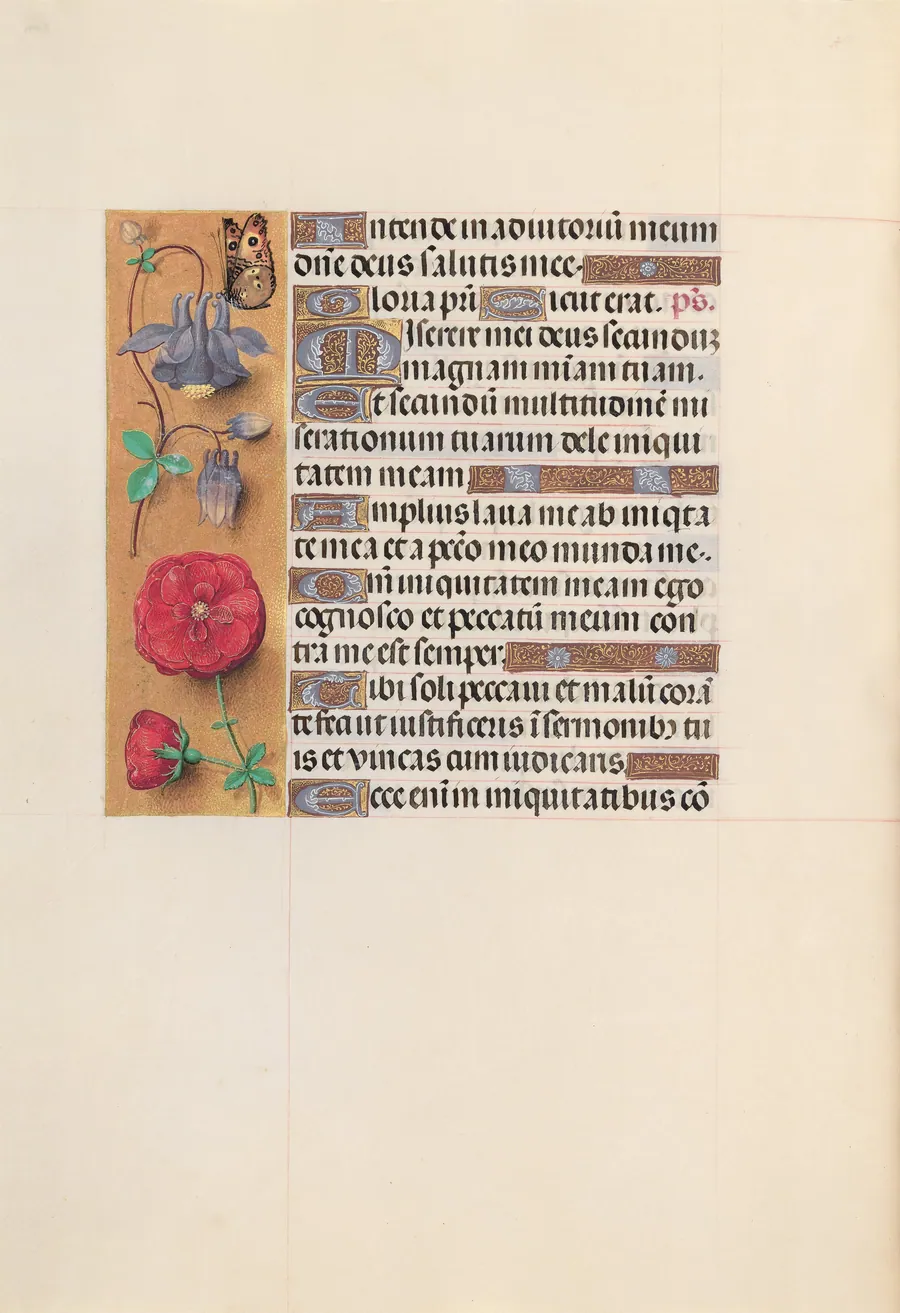 Intende in adiutoriũ meum
dñe deus salutis mee.
Gloria pr̃i Sicut erat. ps.
Miserere mei deus secunduʒ
magnam mĩam tuam.
Et secundũ multitudinẽ mi
serationum tuarum dele iniqui
tatem meam
Amplius laua me ab iniqta
te mea et a pcc̃o meo munda me.
Qm̃ iniquitatem meam ego
cognosco et peccatũ meum con
tra me est semper.
Tibi soli peccaui et malũ corã
te feci ut iustificeris ĩ sermonibꝰ tu
is et vincas cum iudicaris
Ecce enĩ in iniquitatibus cõ